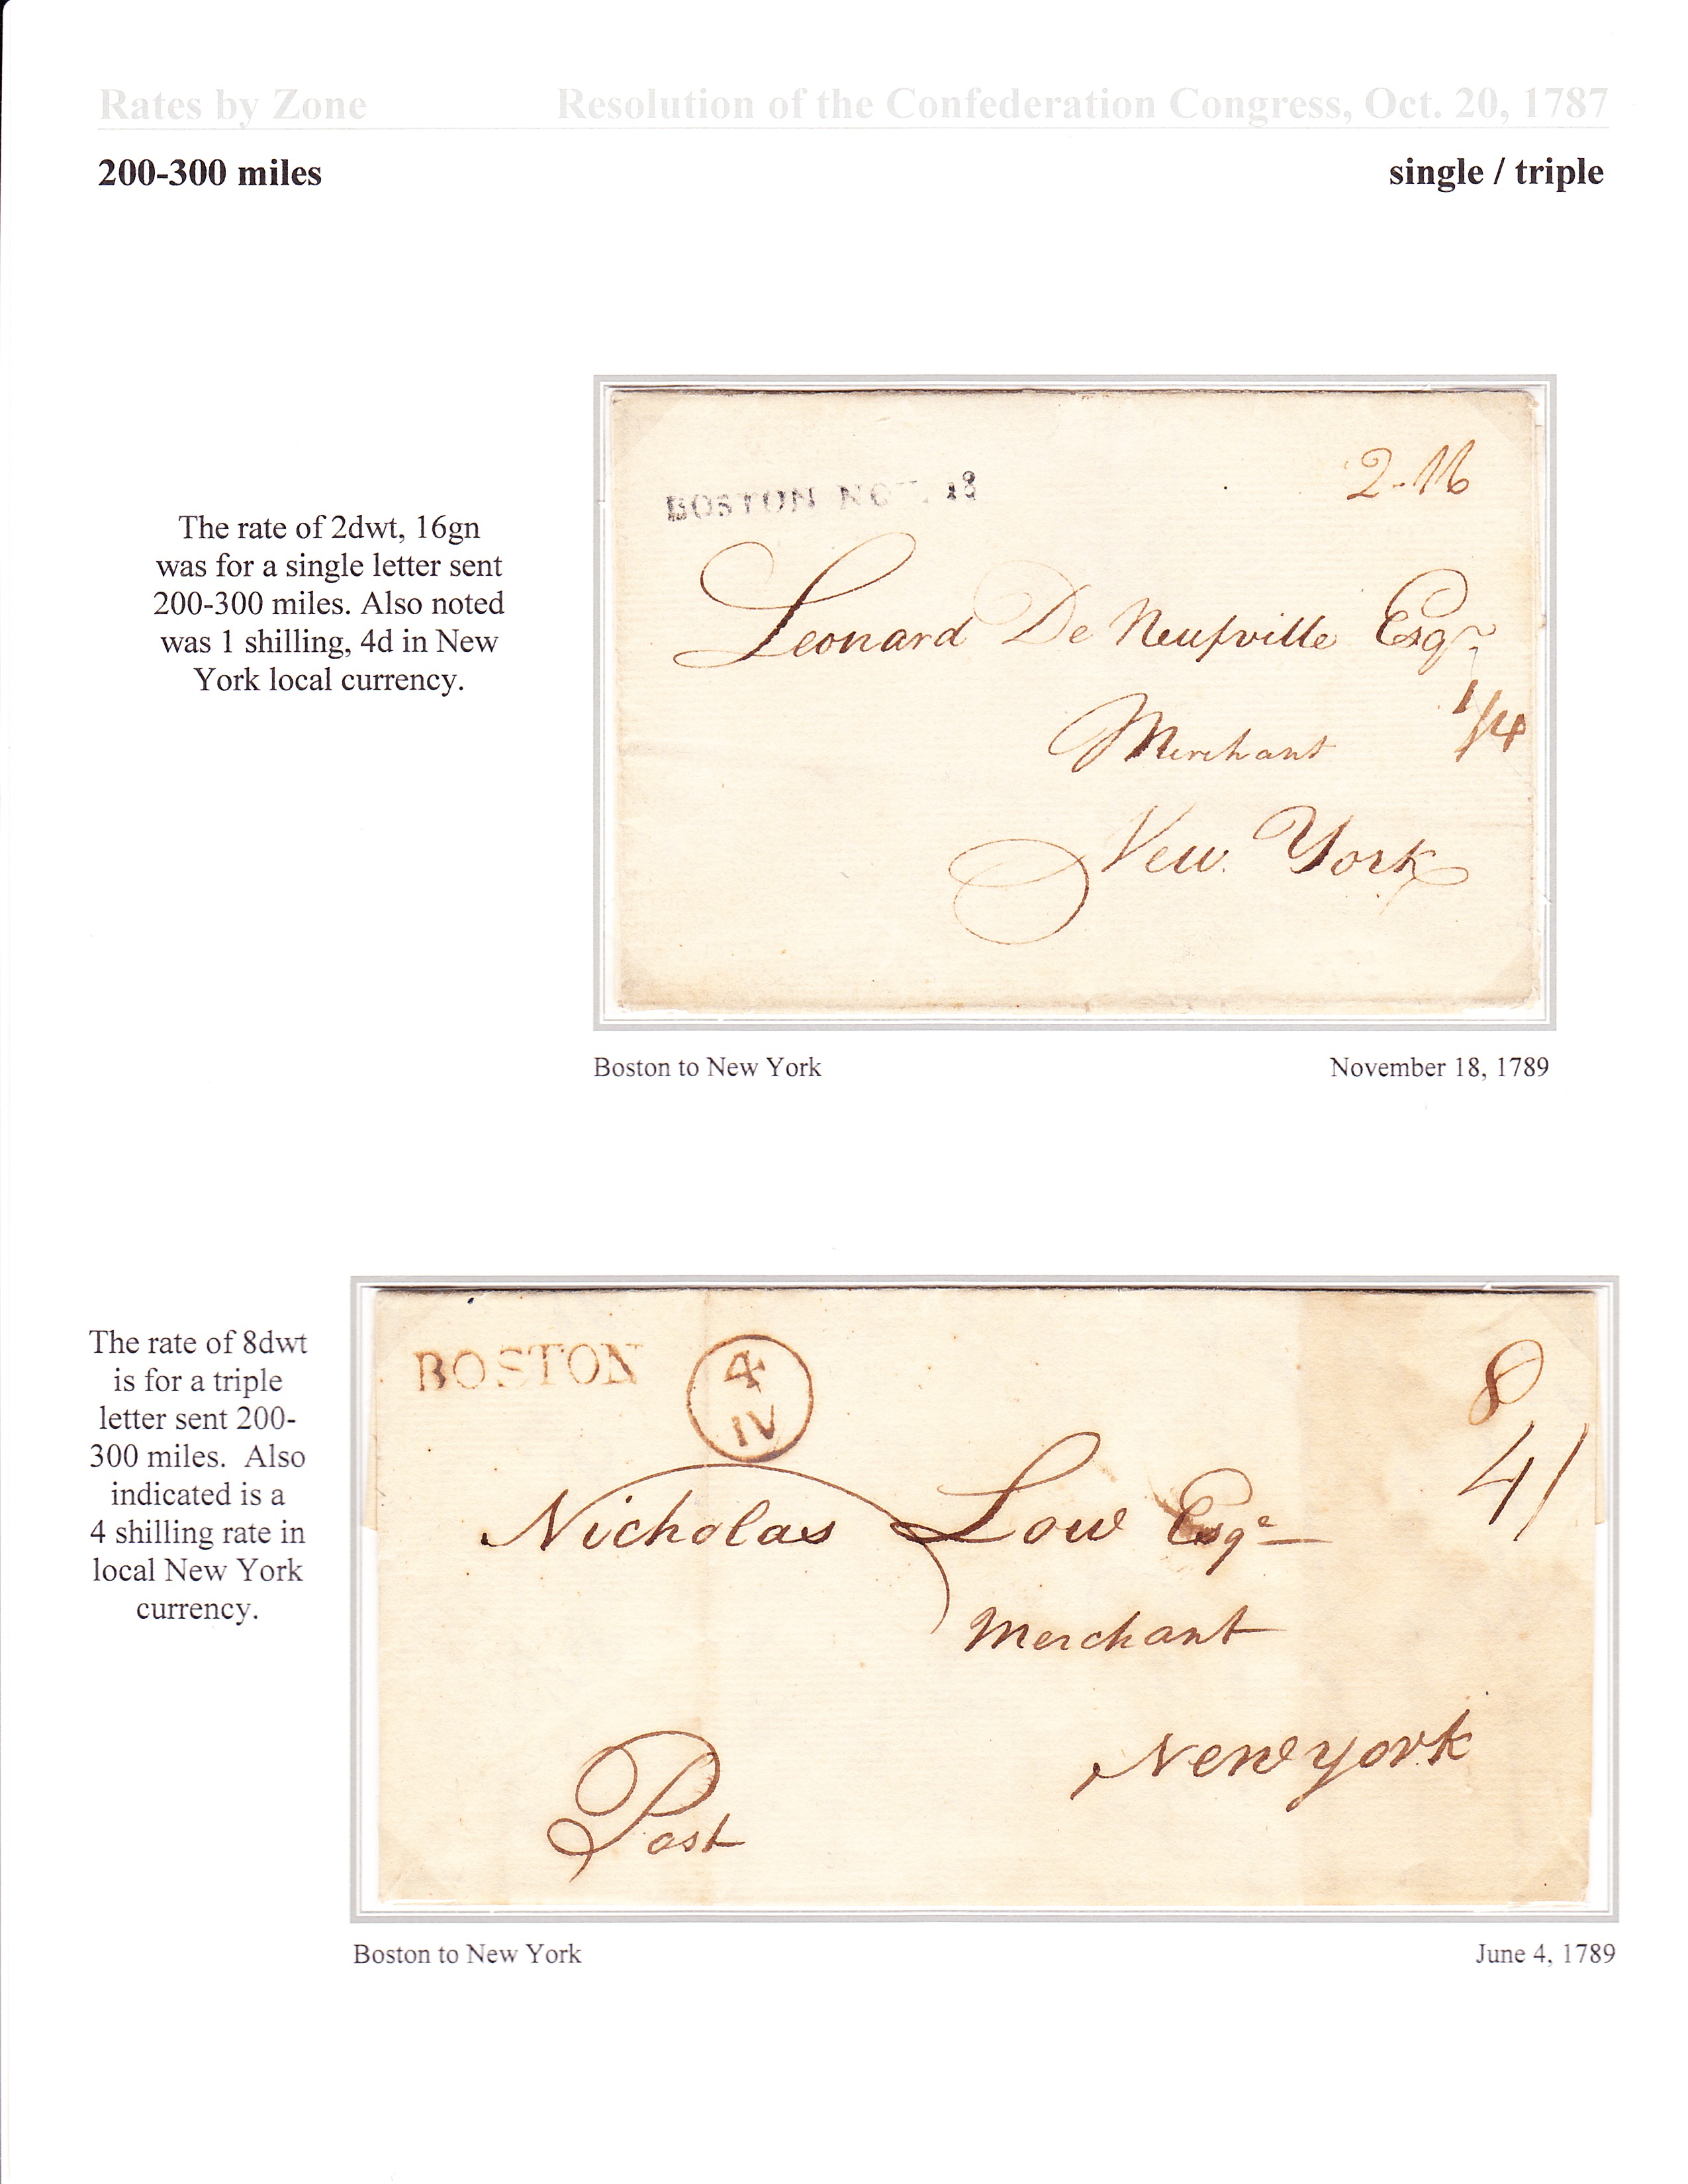 Rates by Zone Resolution of the Confederation Congress, Oct. 20, 1787
200-300 miles single / triple
The rate of 2dwt, 16gn
was for a single letter sent
200-300 miles. Also noted
was 1 shilling, 4d in New
York local currency.
2-16
BOSTON NOV. 18
Leonard De Neufville Esqr.
1/4
Merchant
New York
Boston to New York November 18, 1789
The rate of 8dwt
is for a triple
letter sent 200-
300 miles. Also
indicated is a
4 shilling rate in
local New York
currency.
BOSTON
4
IV
8
4/
Nicholas Low Esqe
Merchant
New york
Post
Boston to New York June 4, 1789